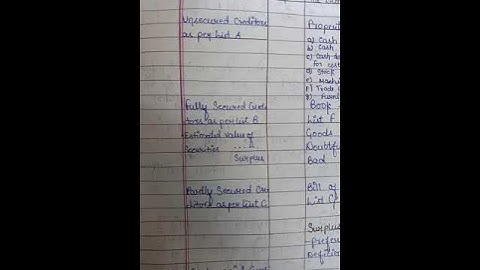 Unsecured Creditors
as per List A
Fully Secured Credi
tors as per List B
Estimated Value of
Securities ....
Surplus
Partly Secured Cre
ditors as per List C
Propriet
a) Cash
b) Cash
c) Cash de
for cert
d) Stock
e) Machin
f) Trade
g) Furni
Book
List F
Goods
Doubtfu
Bad
Bill of
List G
Surplus
prefer
Deficien